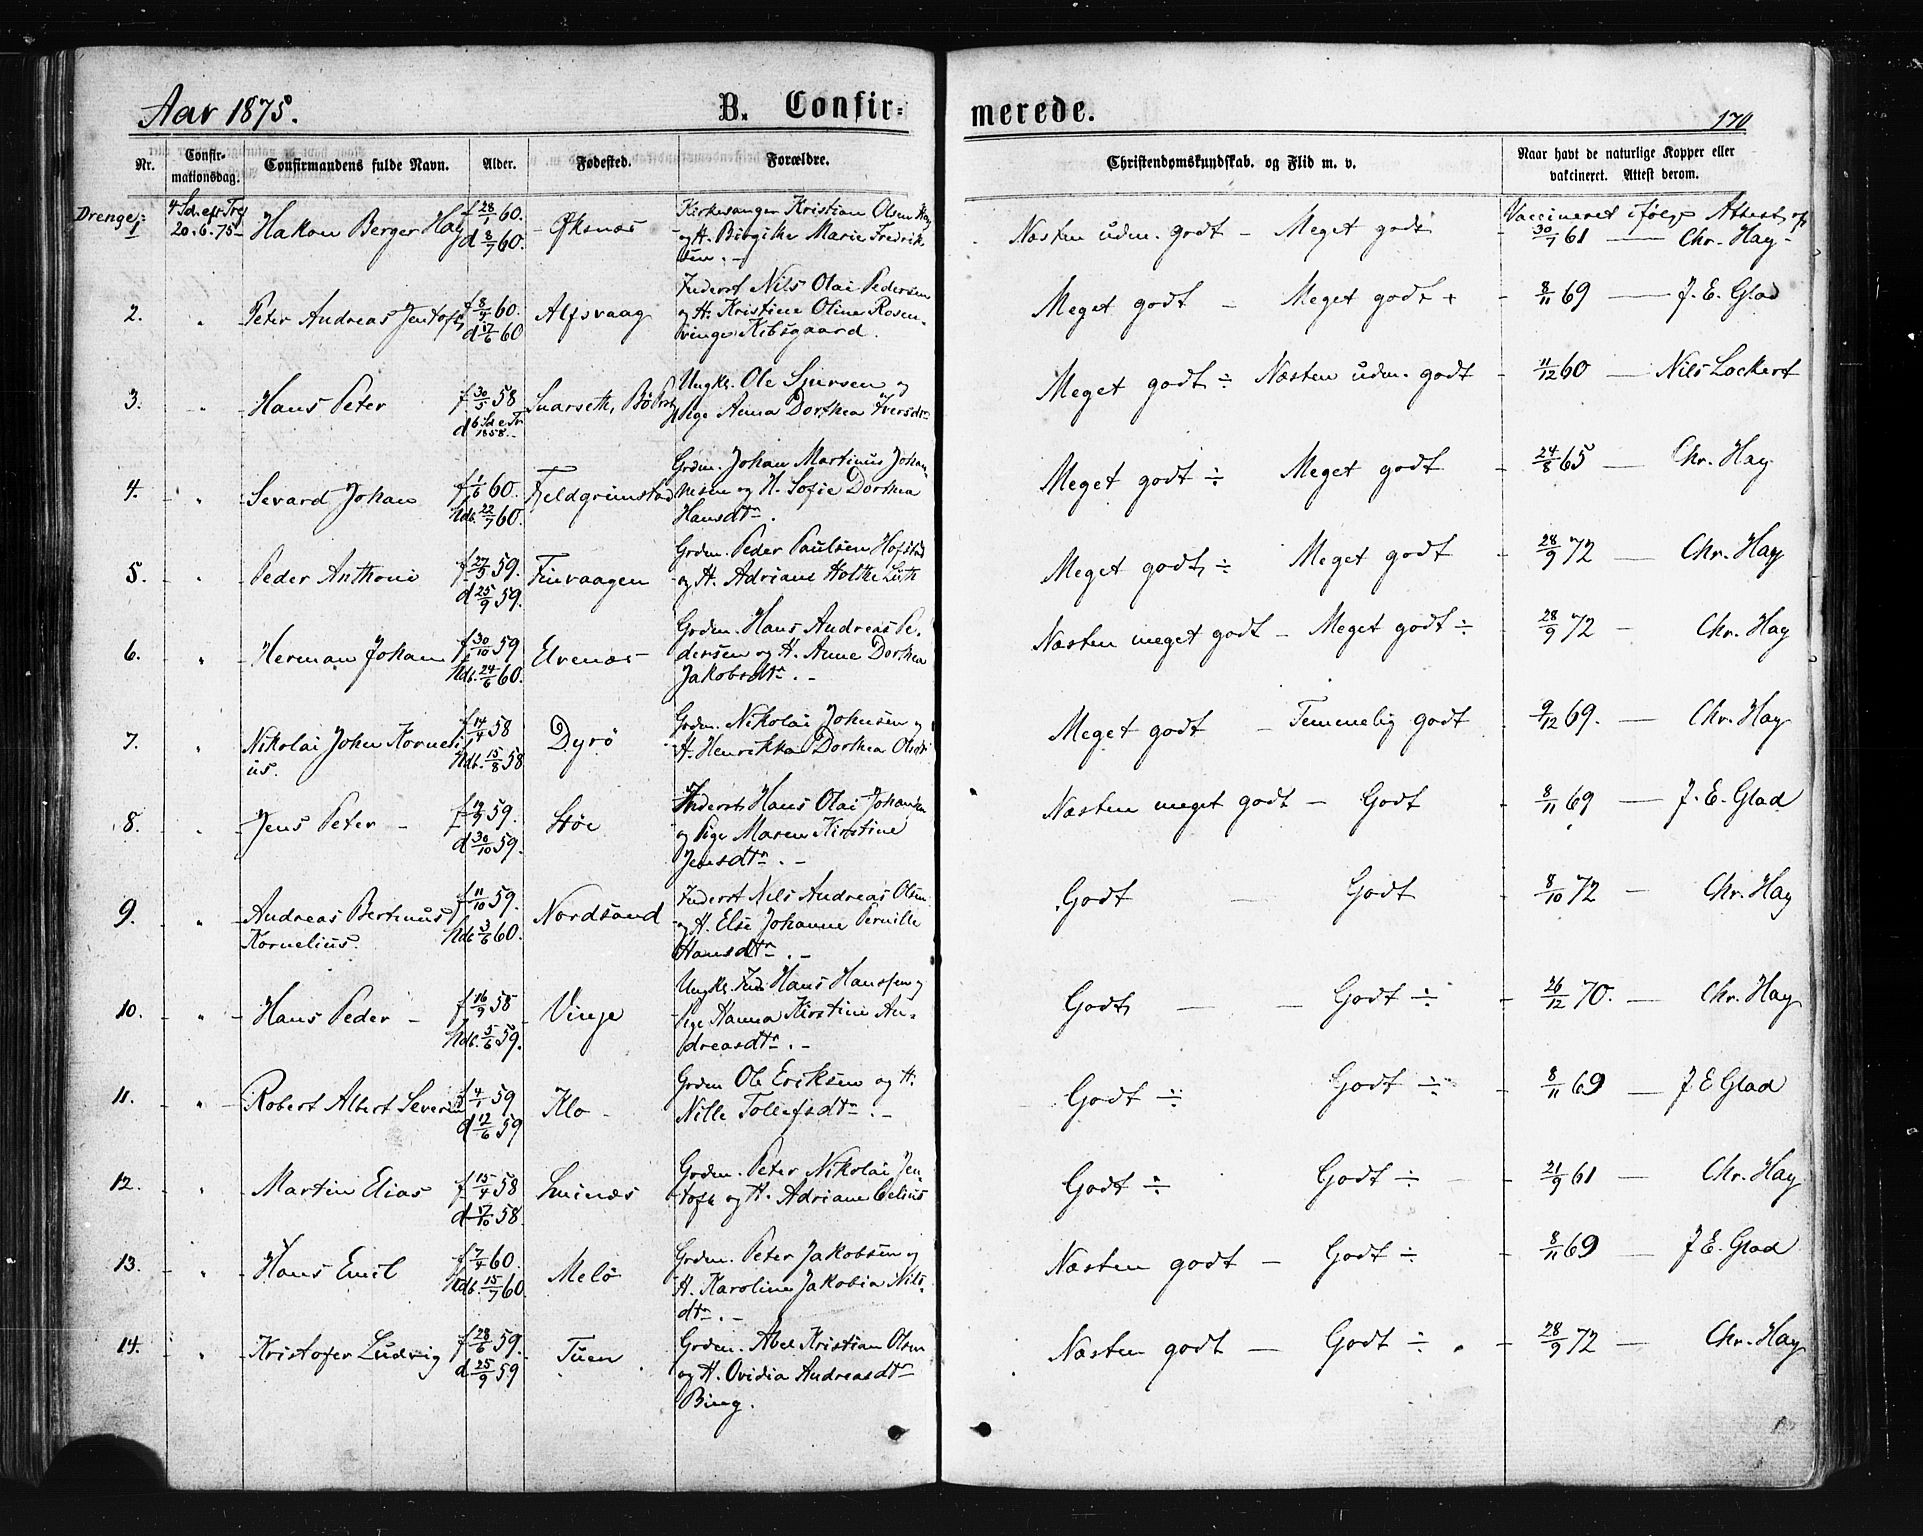 Aar 1875.
B. Confir-
merede.
170
Nr.
Confir-
mationsdag.
Confirmandens fulde Navn.
Alder.
Fødested.
Forældre.
Christendomskundskab. og Flid m. v.
Naar havt de naturlige Kopper eller
vakcineret. Attest derom.
Drenge:
1 4 Sd. eft. Tref
20-6-75- Hakon Berger Hay f 28/1 60. d 8/7 60. Øksnæs
Kirkesanger Kristian Olsen Hay
og H. Birgithe Marie Fredrik-
sen. -
Næsten udm. godt - Meget godt
Vaccineret ifølge Attest af
30/7 61 - Chr. Hay -
2. " Peter Andreas Jentoft f 8/4 60. d 17/6 60 Alfsvaag
Inderst Nils Olai Pedersen
og H. Kristine Oline Rosen-
vinge Kibsgaard.
Meget godt - Meget godt +
8/11 69 - J. E. Glad
3. " Hans Peter f 30/5 58 d 6 Sd e Tr 1858. - Snarseth, Bø Prst
Ungk. Ole Sjursen og
Pige Anna Dorthea Iversdr
Meget godt ÷ Næsten udm. godt
11/12 60 - Nils Lockert
4. " Sevard Johan f 1/6 60. Hdb. 22/7 60. Fjeldgrimstad
Grdm. Johan Martinus Johan-
nesen og H. Sofie Dorthea
Hansdtr.
Meget godt ÷ Meget godt
24/8 65 - Chr. Hay
5. " Peder Anthoni f 27/5 59. d 25/9 59. Finvaagen
Grdm. Peder Paulsen Hofstad
og H. Adriane Holthe Lüth
Meget godt ÷ Meget godt
28/9 72 - Chr. Hay
6. " Herman Johan f 30/10 59 Hdb. 24/6 60. Elvenæs
Grdm. Hans Andreas Pe-
dersen og H. Anne Dorthea
Jakobsdtr. -
Næsten meget godt - Meget godt ÷
28/9 72 - Chr. Hay
7. " Nikolai Johen Korneli
us. f 14/4 58 Hdb. 15/8 58 Dyrö
Grdm. Nikolai Johnsen og
H. Henrikka Dorthea Olsdr
Meget godt - Temmelig godt
9/12 69. - Chr. Hay
8. " Jens Peter - f 14/9 59. d 30/10 59. Støe
Inderst Hans Olai Johansen
og Pige Maren Kirstine
Jensdtr. -
Næsten meget godt - Godt
8/11 69 - J. E. Glad
9. " Andreas Bertinus
Kornelius. f 11/10 59. Hdb 3/6 60. Nordsand
Inderst Nils Andreas Olsen
og H. Else Johanne Pernille
Hansdtr. -
Godt - Godt
8/10 72 - Chr. Hay
10. " Hans Peder - f 16/9 58 Hdb. 5/6 59. Vinje
Ungk. Ind. Hans Hanssen og
Pige Hanna Kirstine An-
dreasdtr. -
Godt - Godt ÷
26/12 70. - Chr. Hay
11. " Robert Albert Severin f 4/1 59 d 12/6 59 Klo -
Grdm Ole Eriksen og H.
Nille Tollefsdtr. -
Godt ÷ Godt ÷
8/11 69 - J E Glad
12. " Martin Elias f 15/4 58 d 17/10 58. Smines
Grdm. Peter Nikolai Jen-
toft og H. Adriane Celius
Godt ÷ Godt ÷
21/9 61 - Chr. Hay
13. " Hans Emil f 7/4 60. Hdb. 15/7 60 Melö
Grdm. Peter Jakobsen og
H. Karoline Jakobia Nils-
dtr. -
Næsten godt - Godt ÷
8/11 69 J E. Glad
14. " Kristofer Ludvig f 28/6 59. d 25/9 59 Tuen
Grdm. Abel Kristian Olsen
og H. Ovidia Andreasdtr
Bing.
Næsten godt - Godt ÷
28/9 72 - Chr. Hay